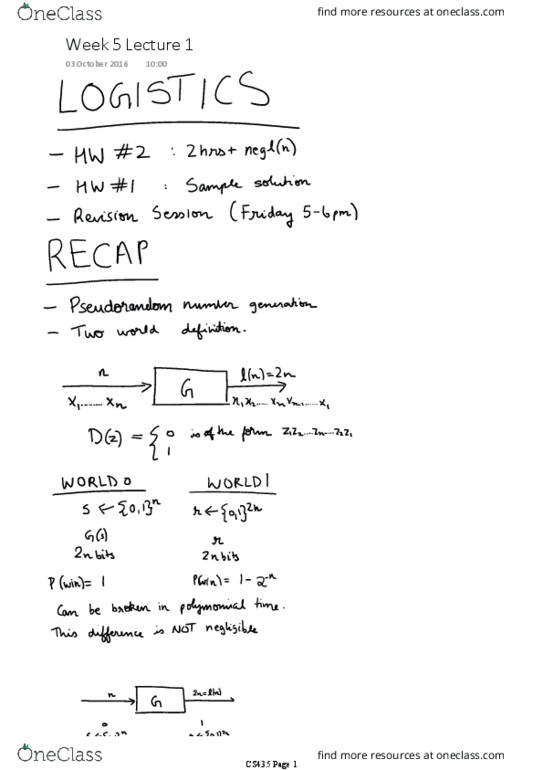 OneClass
find more resources at oneclass.com
Week 5 Lecture 1
03 October 2016 10:00
LOGISTICS
- HW #2 : 2hrs + negl(n)
- HW #1 : Sample solution
- Revision Session (Friday 5-6pm)
RECAP
- Pseudorandom number generation
- Two world definition.
n G l(n)=2n
x₁......xₙ x₁x₂....xₙxₙ......x₁
D(z) = { 0 is of the form z₁z₂...zₙ...z₂z₁
1
WORLD 0 WORLD 1
s ← {0,1}ⁿ r ← {0,1}²ⁿ
G(s) r
2n bits 2n bits
P(win)= 1 P(win)= 1-2⁻ⁿ
Can be broken in polynomial time.
This difference is NOT negligible
n G 2n=l(n)
0 1
OneClass
find more resources at oneclass.com
CS435 Page 1